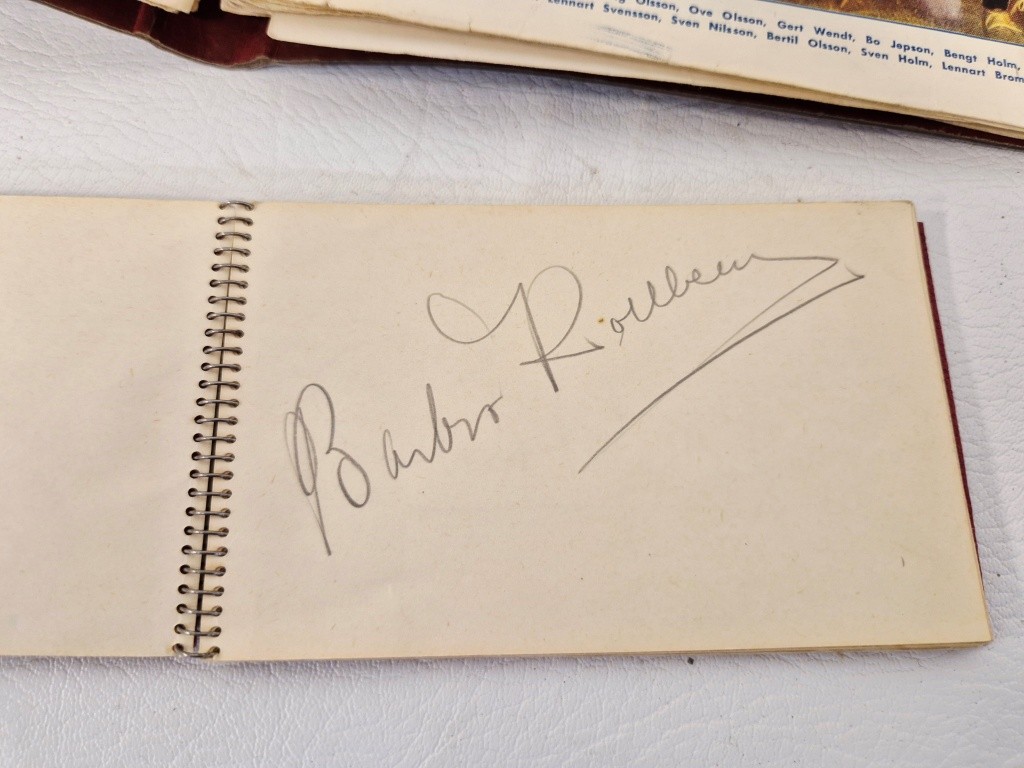 Olsson, Ove Olsson, Gert Wendt, Bo Jepson, Bengt Holm,
Lennart Svensson, Sven Nilsson, Bertil Olsson, Sven Holm, Lennart Brom
Barbro